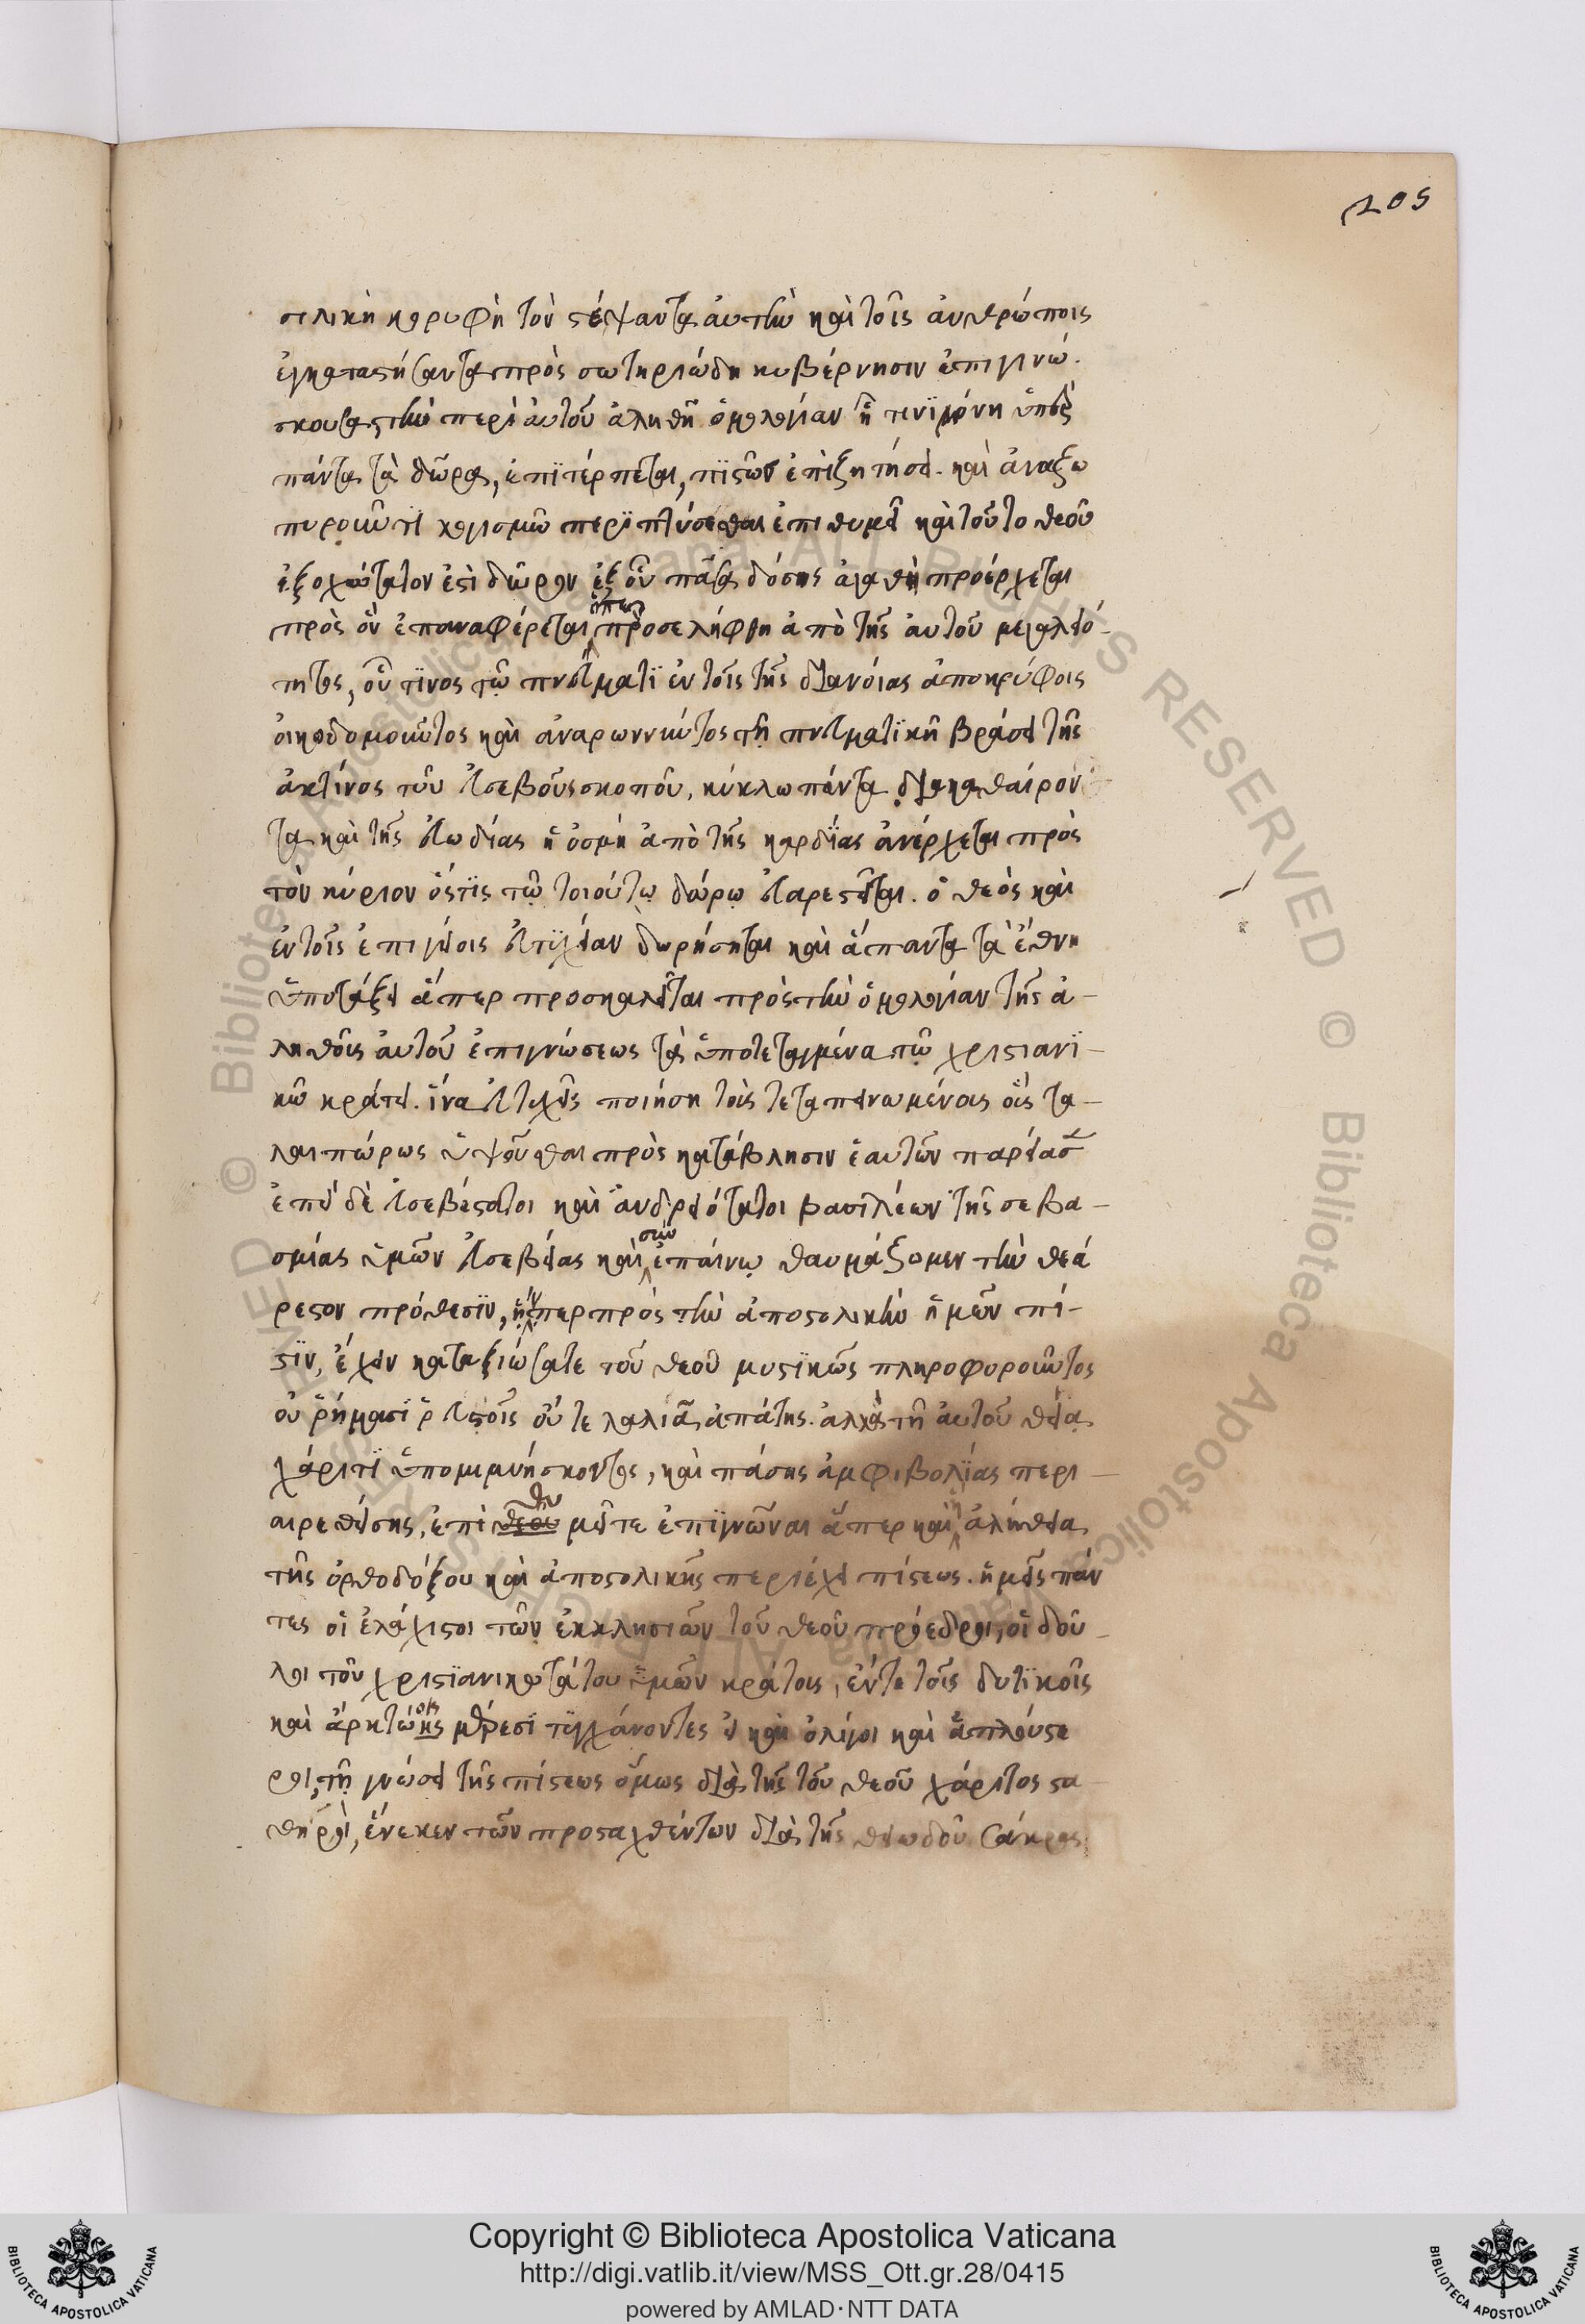 205
σιλικὴ κορυφὴ τὸν στέψαντα αὐτὴν καὶ τοῖς ἀνθρώποις
ἐγκαταστήσαντα πρὸς σωτηριώδη κυβέρνησιν ἐπιγινώ-
σκουσα, τὴν περὶ αὐτοῦ ἀληθῆ ὁμολογίαν ἥ τινι μόνη ὑπὲρ
πάντα τὰ δῶρα, ἐπιτέρπεται, πιστῶς ἐπιζητήσει. καὶ ἀναζω
πυροῦντι λογισμῷ περιπτύσεσθαι ἐπιθυμεῖ καὶ τοῦτο θεοῦ
ἐξοχώτατον ἐστὶ δῶρον ἐξ οὗ πᾶσα δόσις ἀγαθὴ προέρχεται
πρὸς ὃν ἐπαναφέρεται ὅπερ προσελήφθη ἀπὸ τῆς αὐτοῦ μεγαλειό-
τητος, οὗ τινος τῷ πνεύματι ἐν τοῖς τῆς διανοίας ἀποκρύφοις
οἰκοδομοῦντος καὶ ἀναρωννύντος τῇ πνευματικῇ βράσει τῆς
ἀκτίνος τοῦ εὐσεβοῦς σκοποῦ, κύκλω πάντα διακαθαίρον
τα καὶ τῆς εὐωδίας ἡ ὀσμὴ ἀπὸ τῆς καρδίας ἀνέρχεται πρὸς
τὸν κύριον ὅστις τῷ τοιούτῳ δώρῳ εὐαρεστεῖται. ὁ θεὸς καὶ
ἐν τοῖς ἐπιγείοις εὐτυχίαν δωρήσηται καὶ ἅπαντα τὰ ἔθνη
ὑποτάξει ἅπερ προσκαλεῖται πρὸς τὴν ὁμολογίαν τῆς ἀ-
ληθοῦς αὐτοῦ ἐπιγνώσεως τὰ ὑποτεταγμένα τῷ χριστιανι-
κῷ κράτει. ἵνα εὐτυχεῖς ποιήσῃ τοὺς τεταπεινωμένους οὓς τα-
λαιπώρως ὑψοῦσθαι πρὸς κατάβλησιν ἑαυτῶν παρείασε
ἐπεὶ δὲ εὐσεβέστατοι καὶ ἀνδρειότατοι βασιλέων τῆς σεβα-
σμίας ὑμῶν εὐσεβείας καὶ σὺν ἐπαίνῳ θαυμάζομεν τὴν θεά
ρεστον πρόθεσιν, ἥνπερ πρὸς τὴν ἀποστολικὴν ἡμῶν πί-
στιν, ἔχειν κατηξιώσατε τοῦ θεοῦ μυστικῶς πληροφοροῦντος
οὐ ῥήμασι ῥευστοῖς οὔτε λαλιᾶς ἀπάτης. ἀλλὰ τῇ αὐτοῦ θείᾳ
χάριτι ὑπομιμνήσκοντος, καὶ πάσης ἀμφιβολίας περι-
αιρεθείσης, ἐπὶ θεοῦ θν μεῖτε ἐπιγνῶναι ἅπερ καὶ ἡ ἀλήθεια
τῆς ὀρθοδόξου καὶ ἀποστολικῆς περιέχει πίστεως. ἡμεῖς πάν
τες οἱ ἐλάχιστοι τῶν ἐκκλησιῶν τοῦ θεοῦ πρόεδροι, οἱ δοῦ-
λοι τοῦ χριστιανικωτάτου ὑμῶν κράτους, ἔν τε τοῖς δυτικοῖς
καὶ ἀρκτώοις μέρεσι τυγχάνοντες εἰ καὶ ὀλίγοι καὶ ἁπλούστε
ροι, τῇ γνώσει τῆς πίστεως ὅμως διὰ τῆς τοῦ θεοῦ χάριτος στα
θηροί, ἕνεκεν τῶν προσταχθέντων διὰ τῆς θειωδοῦς σάκρας
Copyright © Biblioteca Apostolica Vaticana
http://digi.vatlib.it/view/MSS_Ott.gr.28/0415
powered by AMLAD·NTT DATA